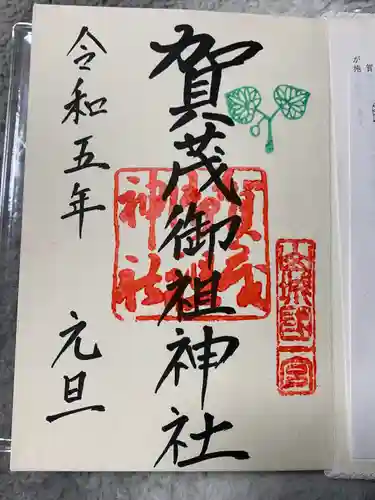 山城國一宮
賀茂御祖神社
賀茂御祖神社
令和五年 元旦